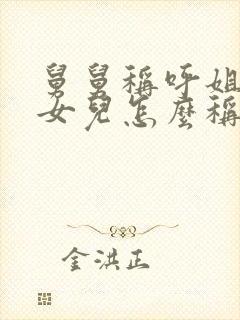 舅舅稱呼姐
女兒怎麼稱
金洪正